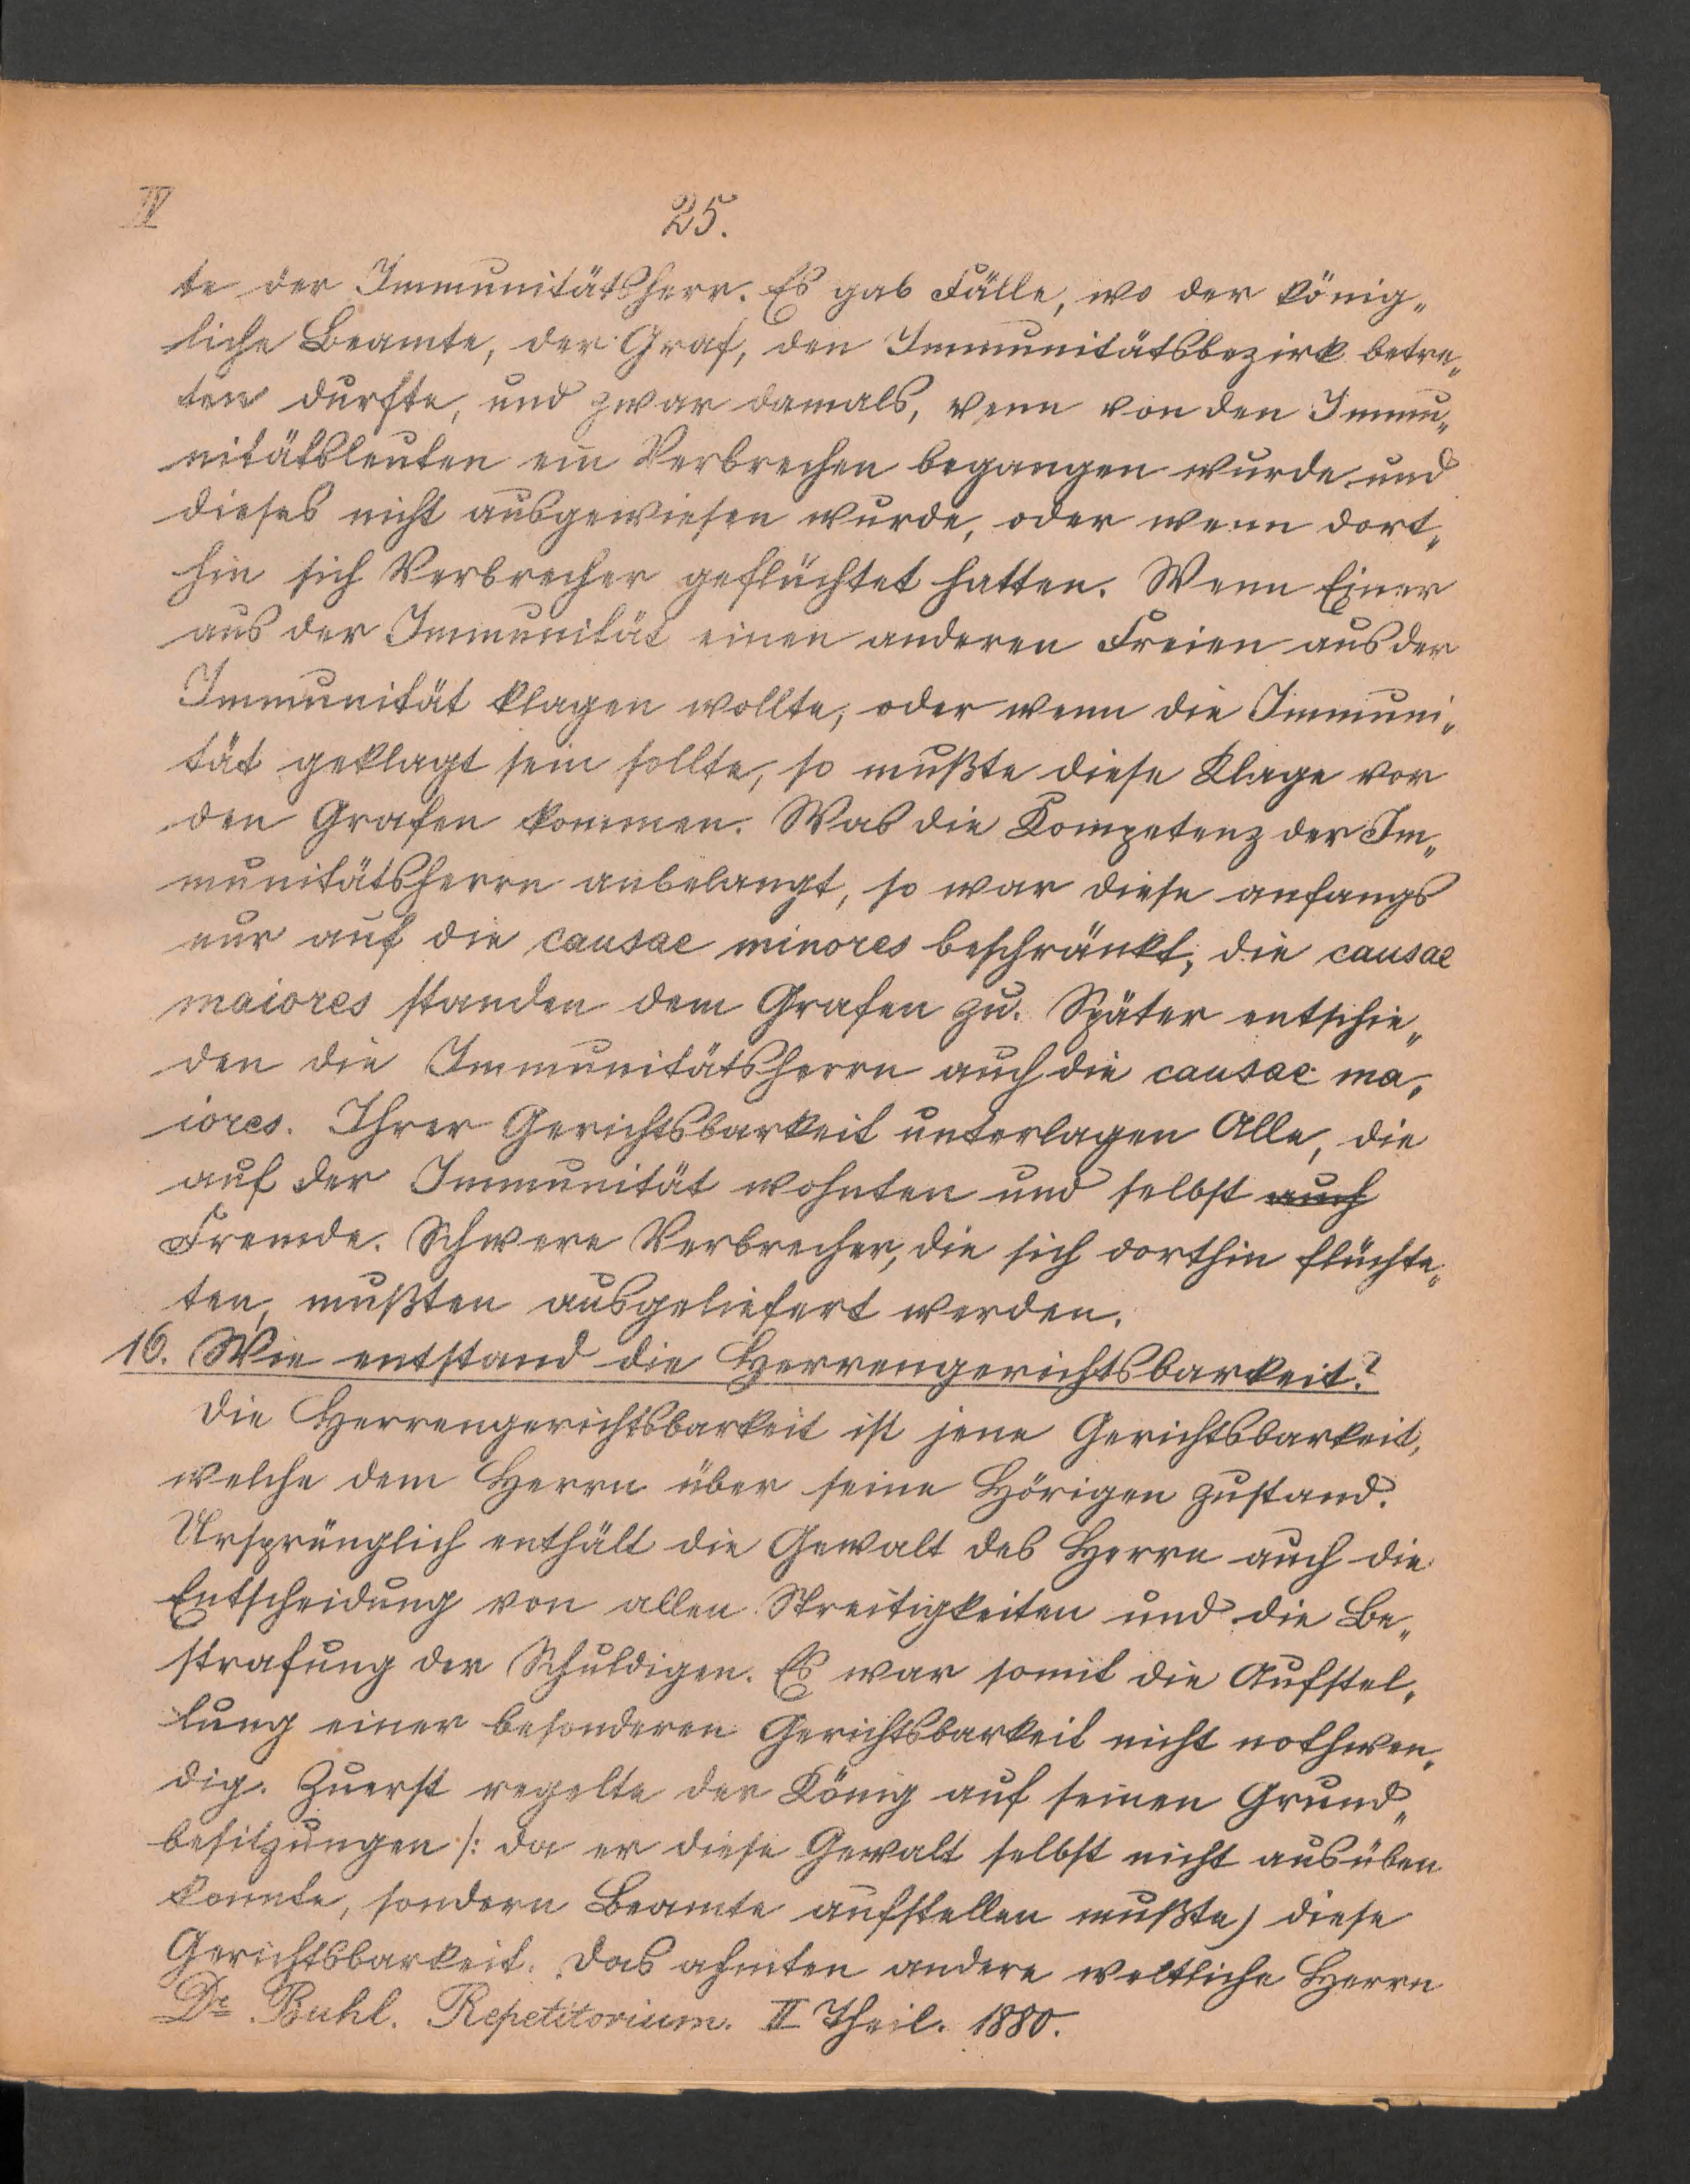 IV
25.
te der Immunitätsherr. Es gab Fälle, wo der könig„
liche Beamte, der Graf, den Immunitätsbezirk betre„
ten durfte, und zwar damals, wenn von den Immu„
nitätsleuten ein Verbrechen begangen wurde und
dieses nicht ausgewiesen wurde, oder wenn dort„
hin sich Verbrecher geflüchtet hatten. Wenn Einer
aus der Immunität einen anderen Freien aus der
Immunität klagen wollte, oder wenn die Immuni„
tät geklagt sein sollte, so mußte diese Klage vor
den Grafen kommen. Was die Kompetenz der Im„
munitätsherrn anbelangt, so war diese anfangs
nur auf die causae minores beschränkt, die causae
maiores standen dem Grafen zu. Später entschie„
den die Immunitätsherrn auch die causae ma„
iores. Ihrer Gerichtsbarkeit unterlagen Alle, die
auf der Immunität wohnten und selbst auch
Fremde. Schwere Verbrecher, die sich dorthin flüchte„
ten, mußten ausgeliefert werden.
16. Wie entstand die Herrengerichtsbarkeit?
Die Herrengerichtsbarkeit ist jene Gerichtsbarkeit,
welche dem Herrn über seine Hörigen zustand.
Ursprünglich enthält die Gewalt des Herrn auch die
Entscheidung von allen Streitigkeiten und die Be„
strafung der Schuldigen. Es war somit die Aufstel„
lung einer besonderen Gerichtsbarkeit nicht nothwen„
dig. Zuerst regelte der König auf seinen Grund„
besitzungen /: da er diese Gewalt selbst nicht ausüben
konnte, sondern Beamte aufstellen mußte) diese
Gerichtsbarkeit. Das ahmten andere weltliche Herrn
Dr. Buhl. Repetitorium. II Theil. 1880.